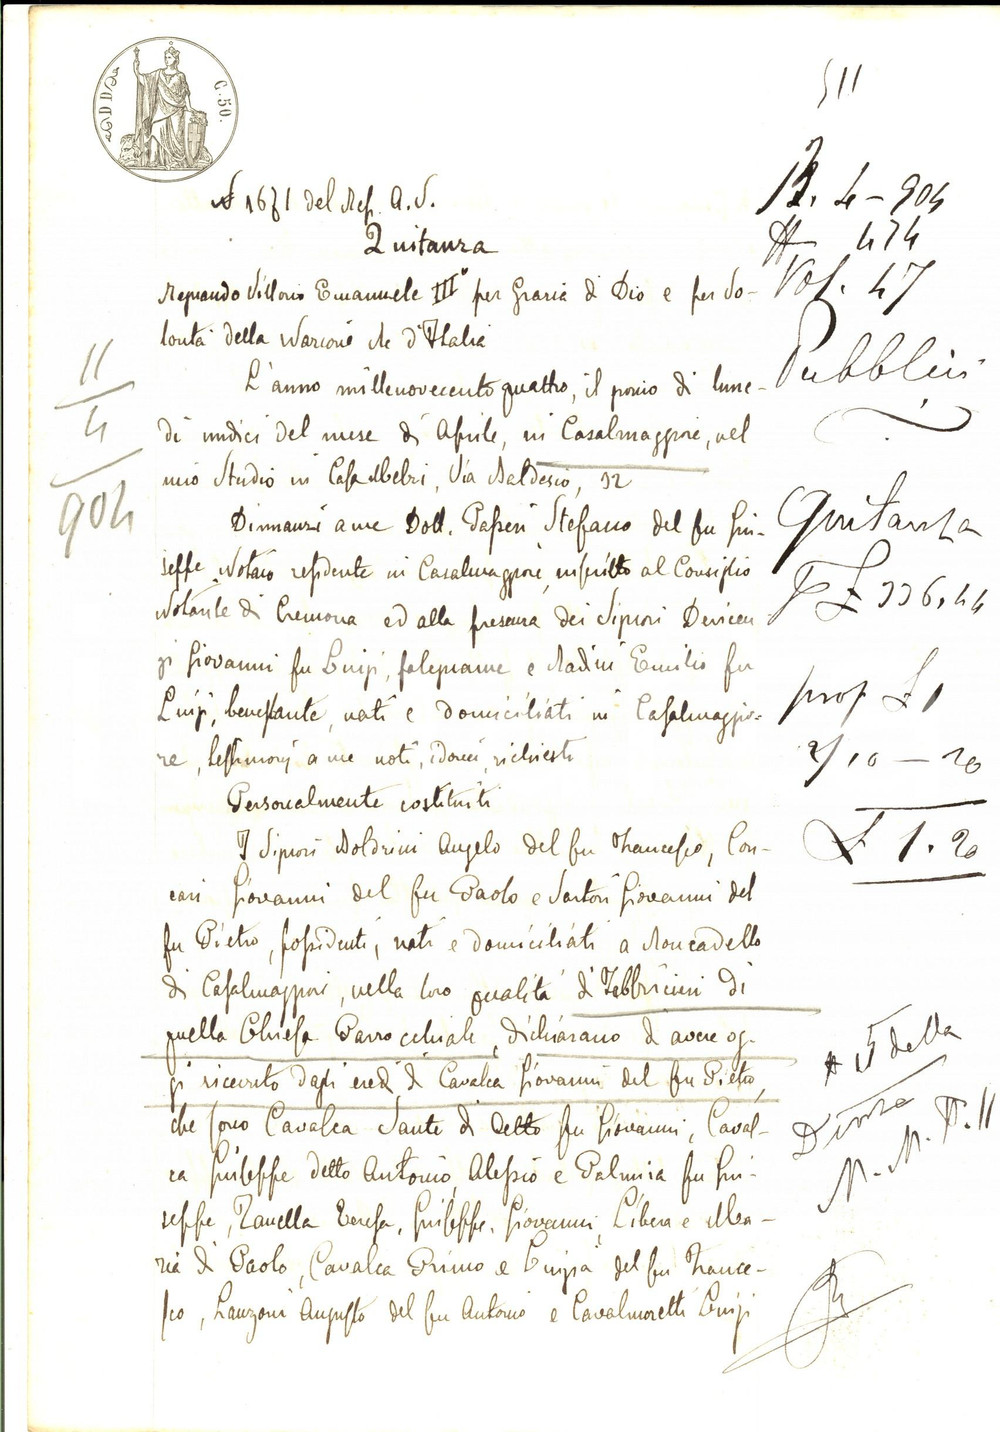 C. 50.
511
N 1671 del Rep. A. V.
Quitanza
Regnando Vittorio Emanuele III° per Grazia di Dio e per Vo-
lontà della Nazione Re d'Italia
L'anno millenovecentoquattro, il giorno di lune-
dì undici del mese di Aprile, in Casalmaggiore, nel
mio Studio in Casa Melzi, Via Baldesio, 12
Dinnanzi a me Dott. Passeri Stefano del fu Giu-
seppe Notaio residente in Casalmaggiore, inscritto al Consiglio
Notarile di Cremona ed alla presenza dei Signori Devicen
zi Giovanni fu Luigi, falegname e Nadini Emilio fu
Luigi, benestante, nati e domiciliati in Casalmaggio-
re, testimonj a me noti, idonei, richiesti
Personalmente costituiti
I Signori Boldrini Angelo del fu Francesco, Con-
cari Giovanni del fu Paolo e Sartori Giovanni del
fu Pietro, possidenti, nati e domiciliati a Roncadello
di Casalmaggiore, nella loro qualità di Fabbricieri di
quella Chiesa Parrocchiale, dichiarano di avere og-
gi ricevuto dagli eredi di Cavalca Giovanni del fu Pietro,
che sono Cavalca Sante di detto fu Giovanni, Caval-
ca Giuseppe detto Antonio, Alessio e Palmira fu Giu-
seppe, Zanella Teresa, Giuseppe, Giovanni, Libera e Ma-
ria di Paolo, Cavalca Primo e Luigia del fu France-
sco, Lanzoni Augusto del fu Antonio e Cavalmoretti Luigi
11
4
904
4 - 904
474
Vol. 47
Pubblici
Quitanza
£ 336,44
prop £ 1
2/10 - 20
£ 1.20
5 della